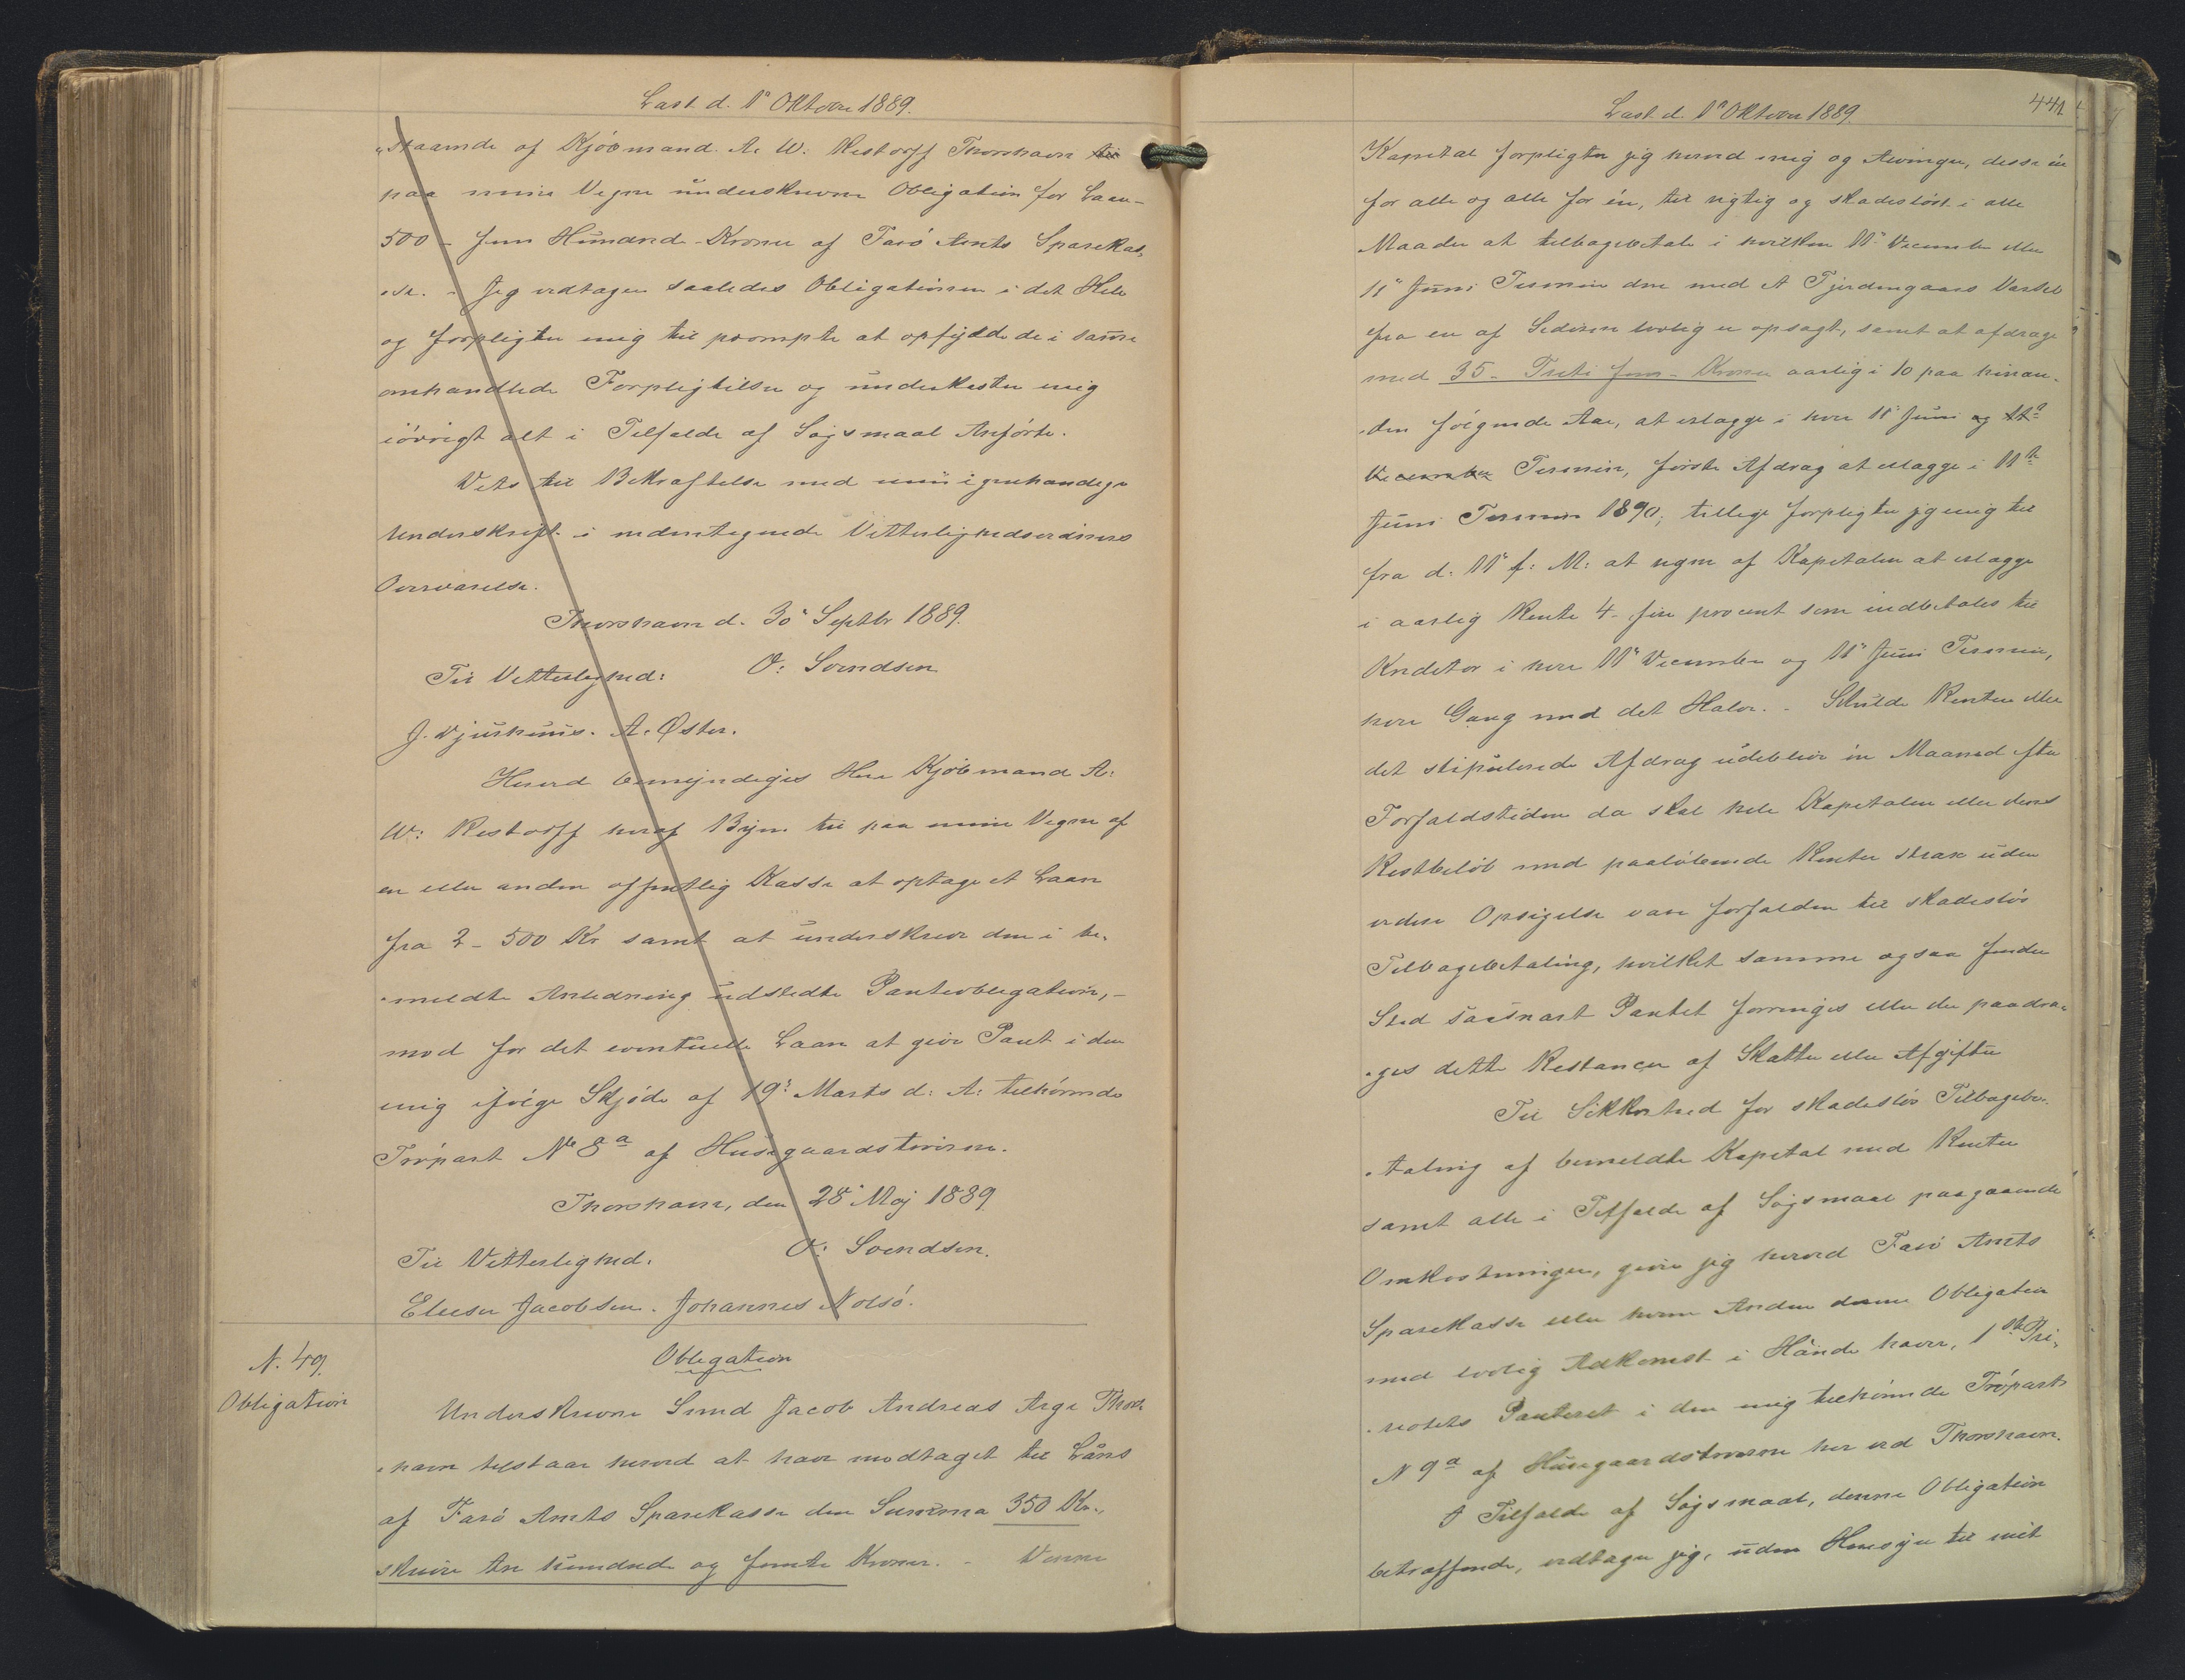 Læst d. 1ª Oktober 1889.
„staaende af Kjöbmand A. W. Restorff Thorshavn til
paa mine Vegne underskrevne Obligation for Laan
500 – fem Hundrede Kroner af Færö Amts Sparekas„
„se. – Jeg vedtager saaledes Obligationen i det Hele
og forpligter mig til prompte at opfylde de i samme
omhandlede Forpligtelser og underkaster mig
iövrigt alt i Tilfælde af Sögsmaal Anförte.
Dets til Bekræftelse med min egenhændige
Underskrift i undertegnede Vitterlighedsvidners
Overværelse.
Thorshavn d. 30' Septbr 1889.
Til Vitterlighed: O: Svendsen
J. Djurhuus. A. Øster.
Herved bemyndiges Herr Kjöbmand A:
W: Restorff her af Byen til paa mine Vegne af
en eller anden offentlig Kasse at optage et Laan
fra 2 – 500 Kr samt at underskrive den i be„
„meldte Anledning udstedte Panteobligation, –
mod for det eventuelle Laan at give Pant i den
mig ifölge Skjöde af 19: Marts d: A: tilhörende
Tröpart № 8ª af Husegaardstrøerne.
Thorshavn, den 28' Maj 1889
Til Vitterlighed. O: Svendsen.
Elieser Jacobsen. Johannes Nolsö.
N. 49.
Obligation
Obligation
Underskrevne Smed Jacob Andreas Arge Thors
„havn tilstaar herved at have modtaget til Låns
af Færö Amts Sparekasse den Summa 350 Kr.,
skriver tre hundrede og femti Kroner. – Denne
Læst d. 1ª Oktober 1889.
441
Kapital forpligter jeg herved mig og Arvinger, disse én
for alle og alle for én, til rigtig og skadeslöst i alle
Maader at tilbagebetale i hvilken 11' December eller
11' Juni Termin den med et Fjerdingaars Varsel
fra en af Siderne lovlig er opsagt, samt at afdrage
med 35 – Treti fem – Kroner aarlig i 10 paa hinan„
„den fölgende Aar, at erlægge i hver 11' Juni og 11ª
December Termin, förste Afdrag at erlægge i 11te
Juni Termin 1890; tillige forpligter jeg mig til
fra d: 11' f: M: at regne af Kapitalen at erlægge
i aarlig Rente 4 – fire procent som indbetales til
Kreditor i hver 11' December og 11' Juni Termin,
hver Gang med det Halve. – Skulde Renten eller
det stipulerede Afdrag udeblive én Maaned efter
Forfaldstiden da skal hele Kapitalen eller dens
Restbelöb med paalöbende Renter strax uden
videre Opsigelse være forfalden til skadeslös
Tilbagebetaling, hvilket samme ogsaa finder
Sted saasnart Pantet forringes eller der paadra„
„ges dette Restancer af Skatter eller Afgifter
Til Sikkerhed for skadeslös Tilbagebe„
„taling af bemeldte Kapital med Renter
samt alle i Tilfælde af Sögsmaal paagaaende
Omkostninger, giver jeg herved Færö Amts
Sparekasse eller hvem Anden denne Obligation
med lovlig Adkomst i Hände haver, 1ste Pri„
„oritets Panteret i den mig tilhörende Tröpart
N 9ª af Husegaardstrøerne her ved Thorshavn.
I Tilfælde af Sögsmaal, denne Obligation
betræffende, vedtager jeg, uden Hensyn til mit